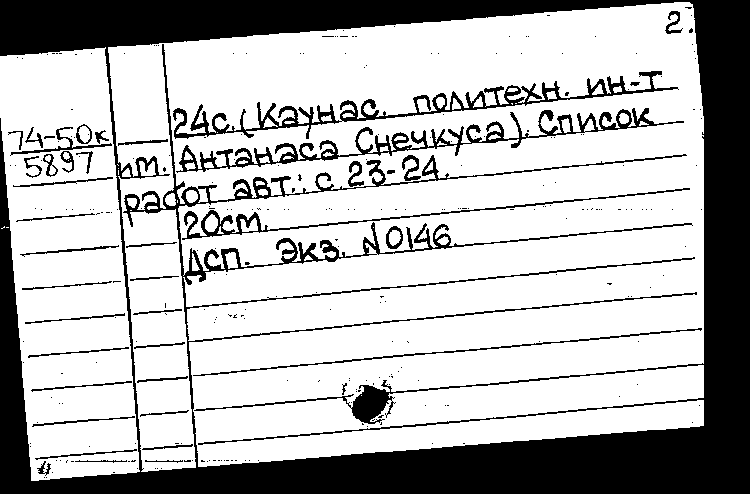 2.
24с. (Каунас. политехн. ин-т
74-50к
5897
им. Антанаса Снечкуса). Список
работ авт.: с. 23-24.
20см.
Дсп. Экз. N0146